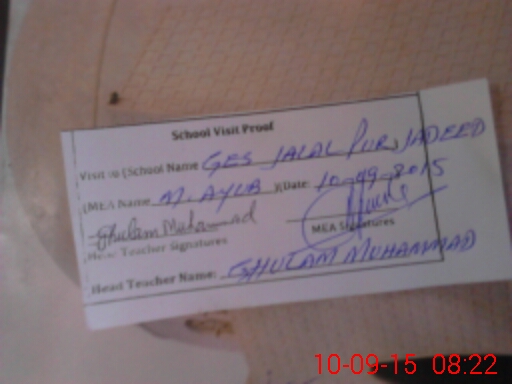 School Visit Proof
Visit to (School Name GES JALAL PUR, JADEED
(MEA Name M. AYUB )(Date: 10-09-2015
Ghulam Muhammad
Head Teacher Signatures MEA Signatures
Head Teacher Name: GHULAM MUHAMMAD
10-09-15 08:22